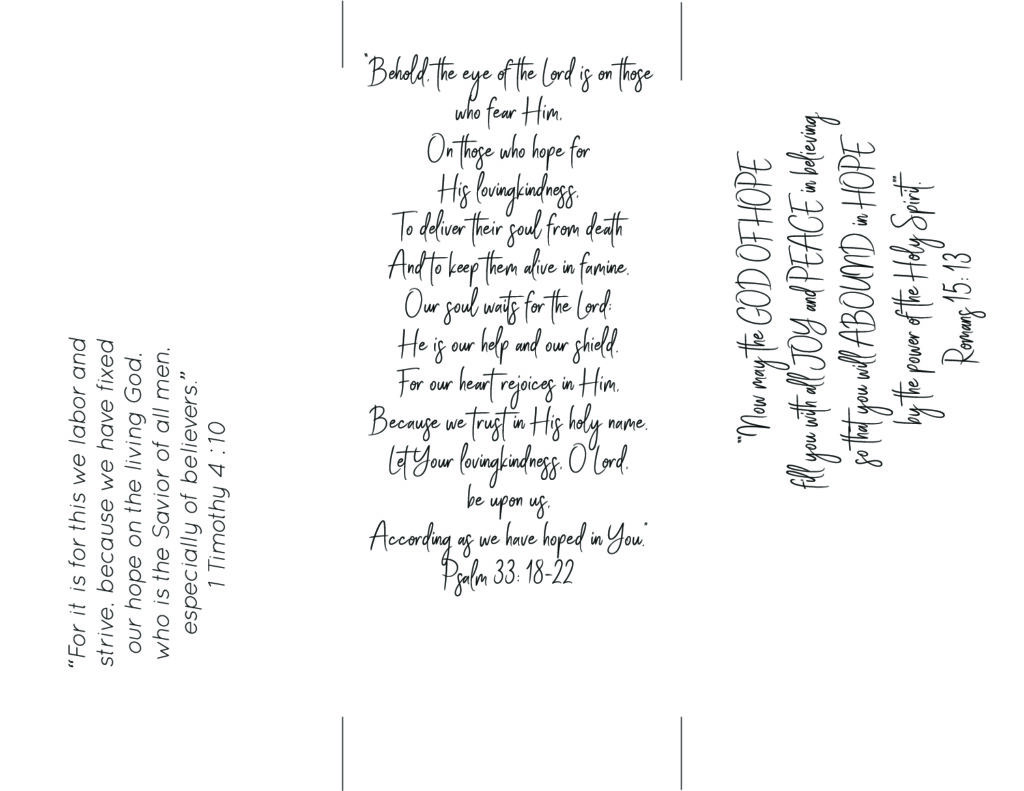 “For it is for this we labor and
strive, because we have fixed
our hope on the living God,
who is the Savior of all men,
especially of believers.”
1 Timothy 4:10
“Behold, the eye of the Lord is on those
who fear Him,
On those who hope for
His lovingkindness,
To deliver their soul from death
And to keep them alive in famine.
Our soul waits for the Lord;
He is our help and our shield.
For our heart rejoices in Him,
Because we trust in His holy name.
Let Your lovingkindness, O Lord,
be upon us,
According as we have hoped in You.”
Psalm 33:18-22
“Now may the GOD OF HOPE
fill you with all JOY and PEACE in believing,
so that you will ABOUND in HOPE
by the power of the Holy Spirit”.
Romans 15:13